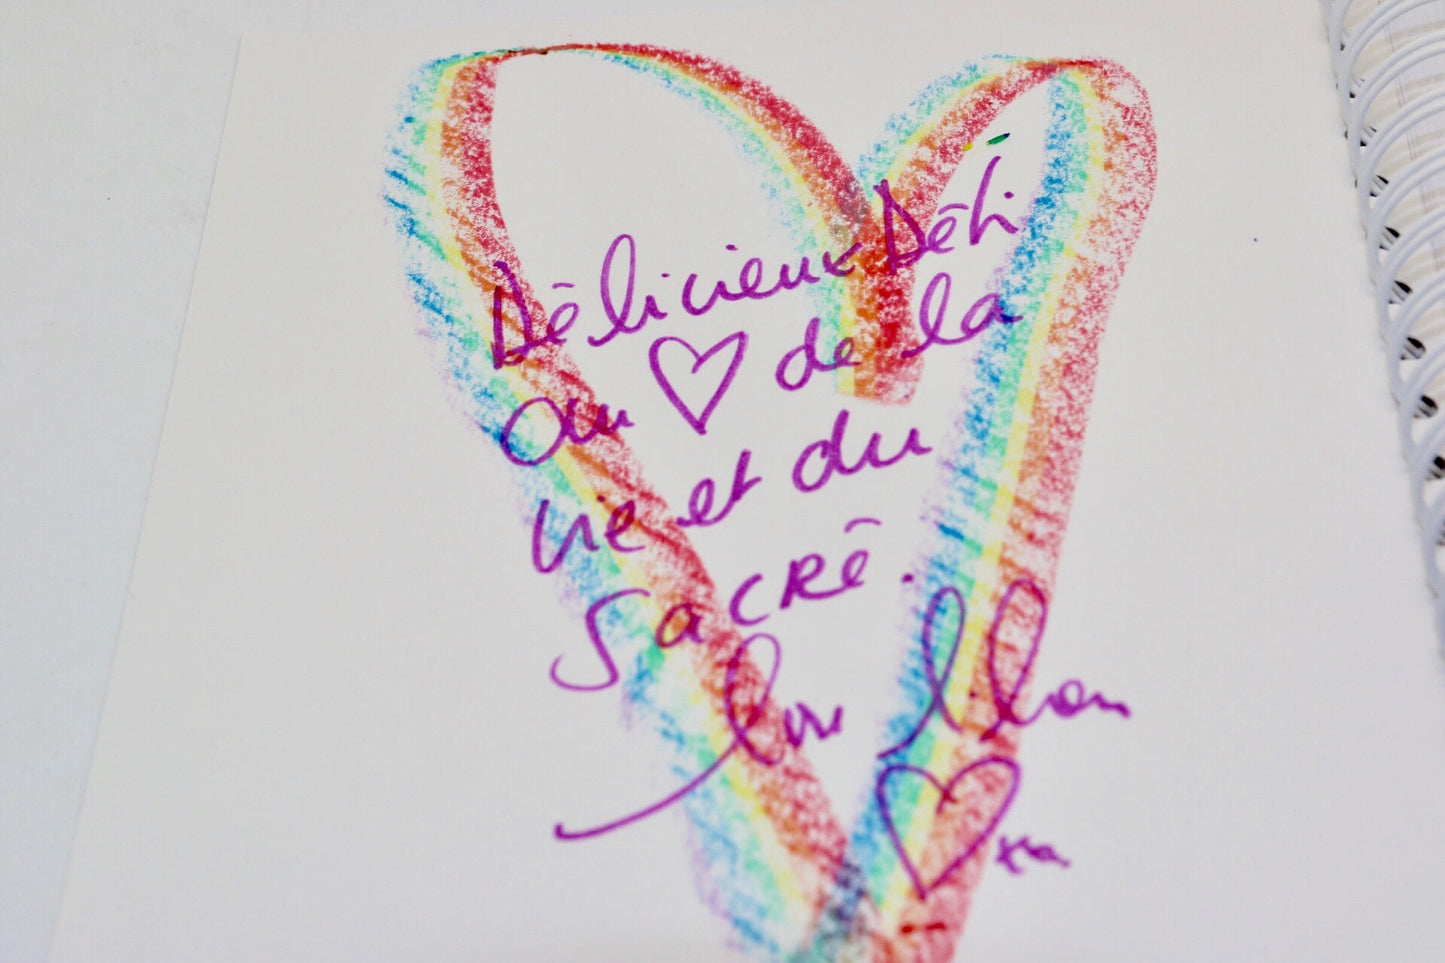 Délicieux Défi
au ♡ de la
vie et du
sacré.